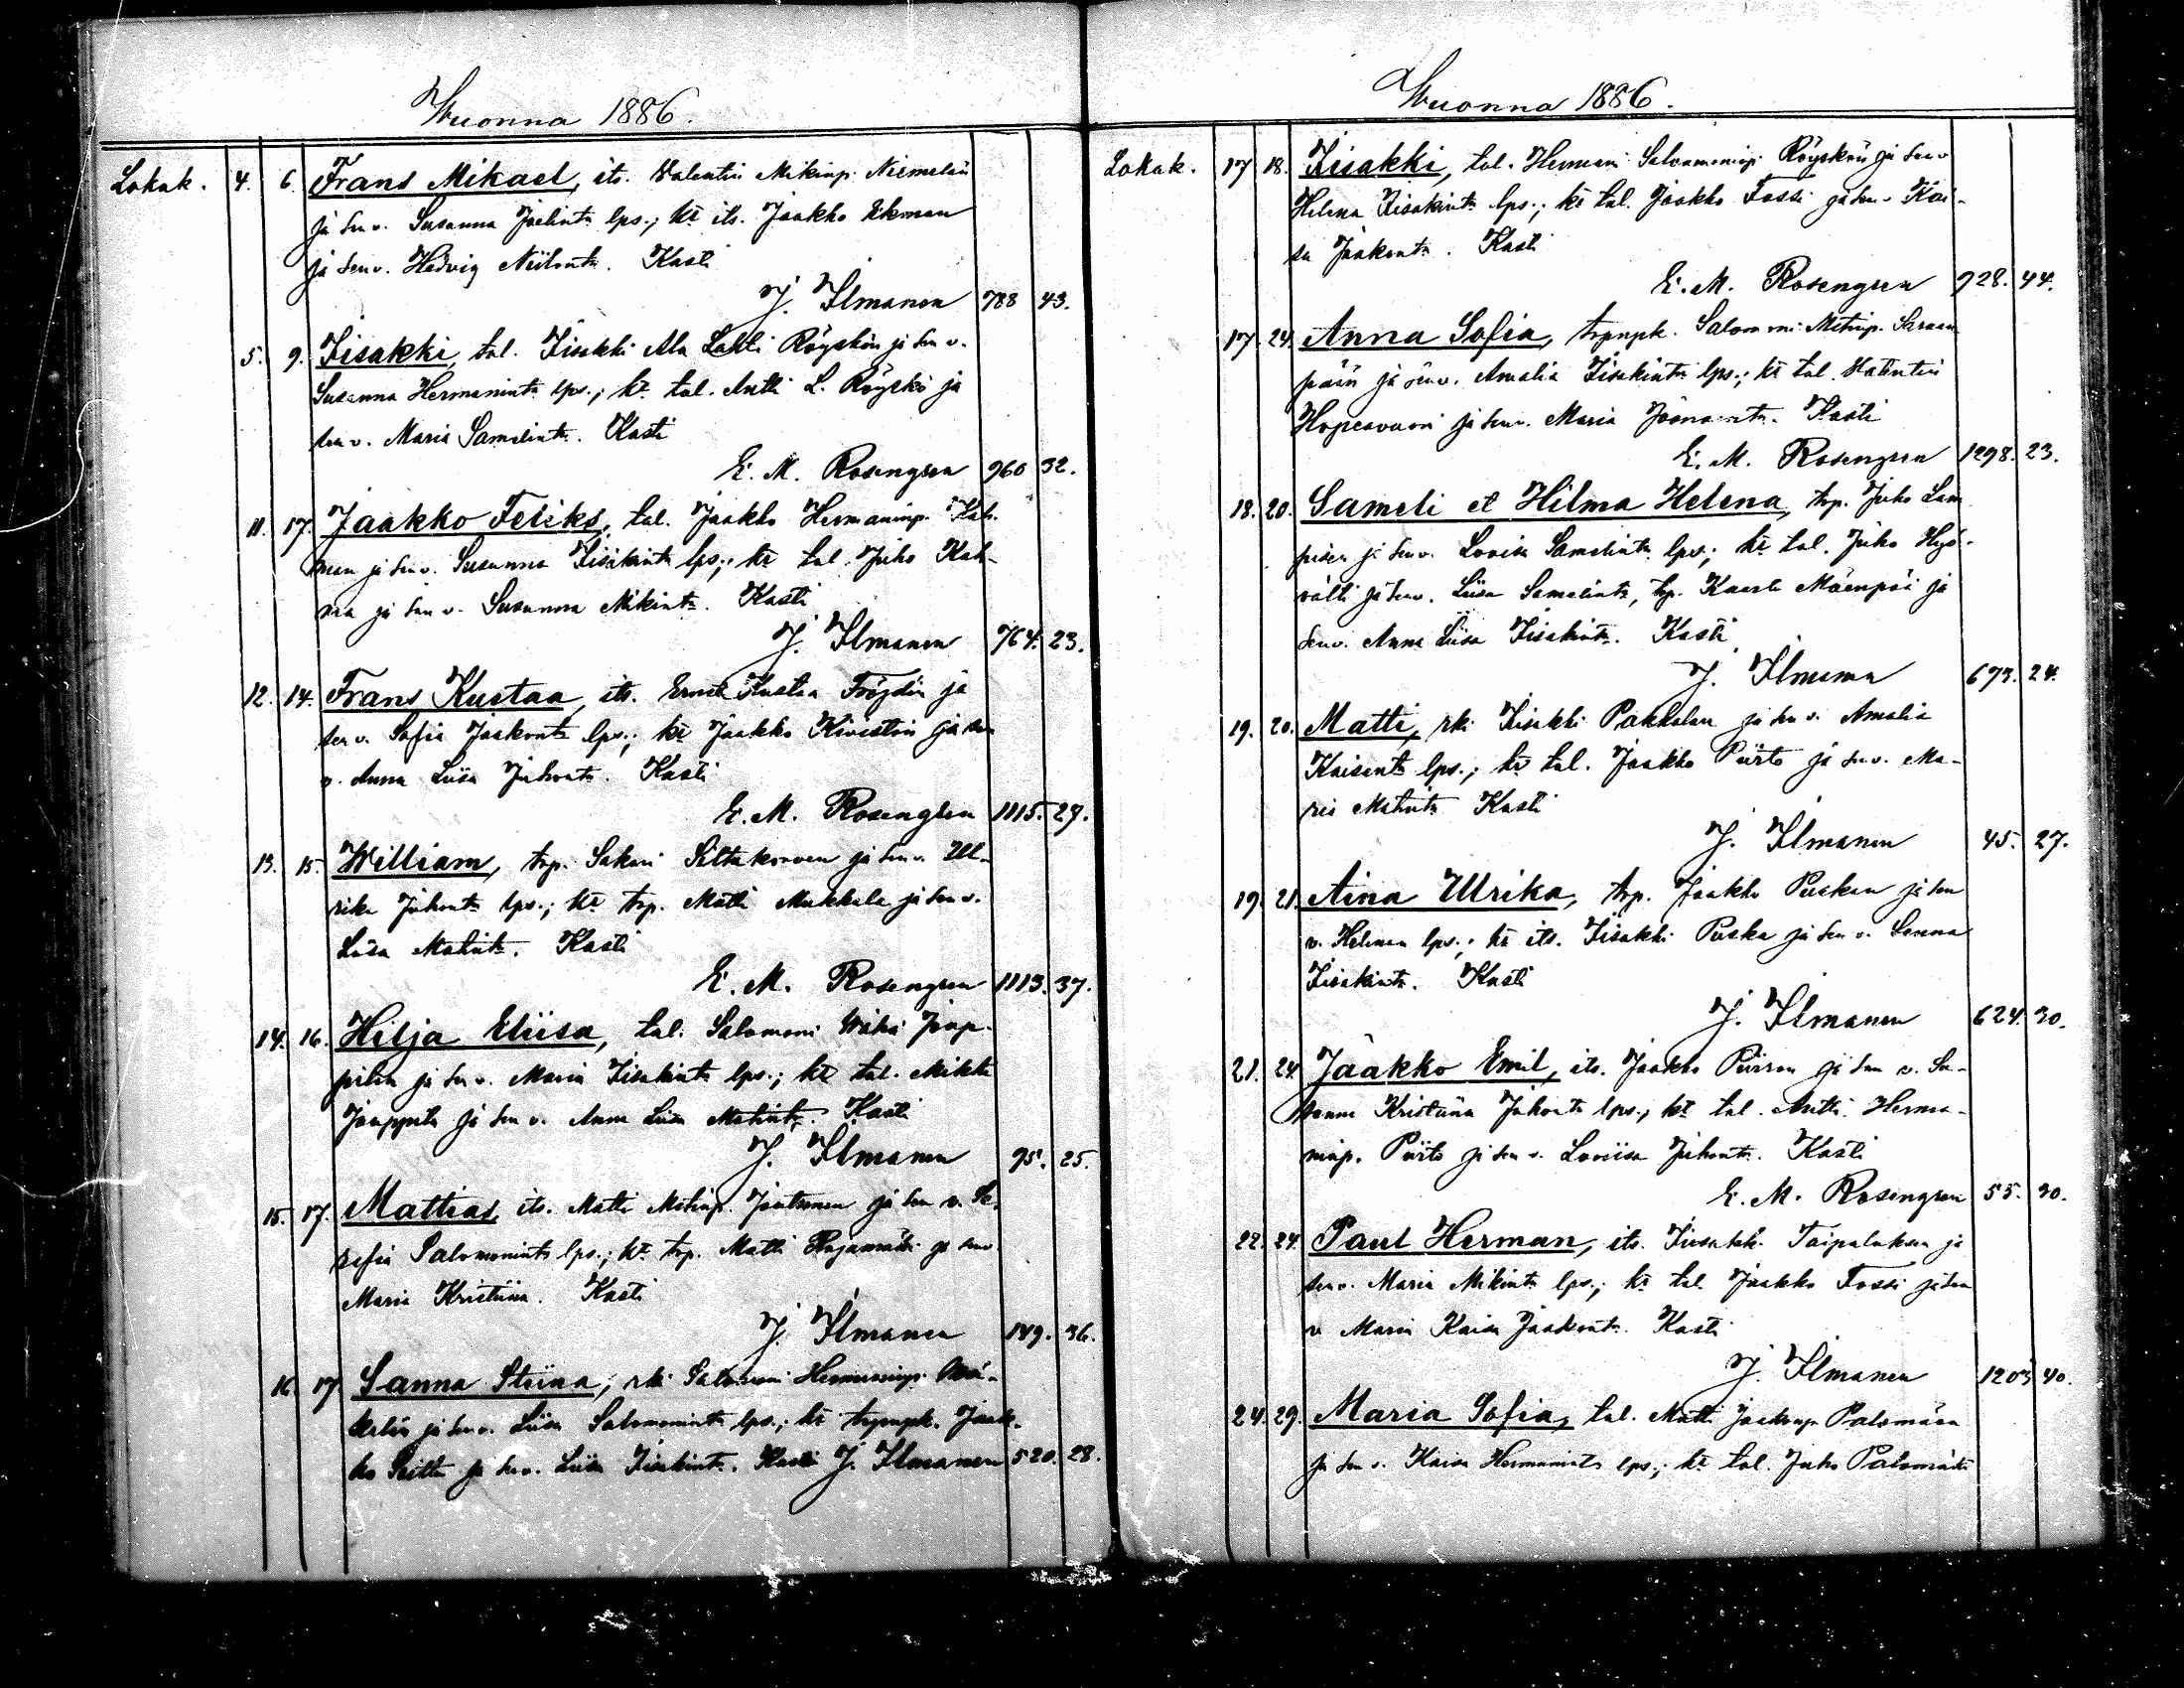 Wuonna 1886.
Lokak. 4. 6. Frans Mikael, its. Valentin Mikinp. Niemelän
ja sen v. Susanna Joelints lps.; kt its. Jaakko Ekman
ja sen v. Hedvig Niilonts. Kasti
J. Ilmanen 788 43.
5. 9. Iisakki, tal. Iisakki Ala Lahti Röyskön ja sen v.
Susanna Hermanints lps.; kt tal. Antti L. Röyskö ja
sen v. Maria Samelints. Kasti
E. M. Rosengren 960 32.
11. 17. Jaakko Feliks, tal. Jaakko Hermaninp. Kah-
ja sen v. Susanna Iisakints lps.; kt tal. Juho Kah-
ra ja sen v. Susanna Mikints. Kasti
J. Ilmanen 764. 23.
12. 14. Frans Kustaa, its. Ernst Kustaa Fröjdin ja
sen v. Sofia Jaakonts lps.; kt Jaakko Kivistön ja sen
v. Anna Liisa Juhonts. Kasti
E. M. Rosengren 1115. 27.
13. 15. William, trp. Sakari Siltakorven ja sen v. Ul-
rika Juhonts lps.; kt trp. Matti Makkala ja sen v.
Liisa Matints. Kasti
E. M. Rosengren 1113. 37.
14. 16. Hilja Eliisa, tal. Salomoni Wähä Joup-
pilan ja sen v. Maria Iisakints lps.; kt tal. Mikki
Jouppila ja sen v. Anna Liisa Matints. Kasti
J. Ilmanen 95. 25.
15. 17. Mattias, its. Matti Matinp. Joutsenen ja sen v. Se-
refia Salomonints lps.; kt trp. Matti Rajamäki ja sen v.
Maria Kristiina. Kasti
J. Ilmanen 149. 36.
16. 17. Sanna Stiina, rki Salomoni Hermaninp. Mä-
kelän ja sen v. Liisa Salomonints lps.; kt trpnpk. Jaak-
ko ja sen v. Liisa Iisakints. Kasti J. Ilmanen 520. 28.
Wuonna 1886.
Lokak. 17 18. Iisakki, tal. Hermani Salomoninp. Röyskön ja sen v
Helena Iisakints lps.; kt tal. Jaakko Fossi ja sen v Kai-
sa Jaakonts. Kasti
E. M. Rosengren 928. 44.
17. 24. Anna Sofia, trpnpk. Salomoni Matinp. Saraan-
pään ja sen v. Amalia Iisakints lps.; kt tal. Valentin
Hopeavuori ja sen v. Maria Joonaants. Kasti
E. M. Rosengren 1298. 23.
18. 20. Sameli et Hilma Helena, trp. Juho Lam
pisen ja sen v. Lovisa Samelints lps.; kt tal. Juho Hyö-
välti ja sen v. Liisa Samelints, trp. Kaarle Mäenpää ja
sen v. Anna Liisa Iisakints. Kasti
J. Ilmanen 673. 24.
19. 20. Matti, rki Iisakki Pakkalan ja sen v. Amalia
Kaisants lps.; kt tal. Jaakko Piirto ja sen v. Ma-
ria Matints Kasti
J. Ilmanen 45. 27.
19. 21. Aina Ulrika, trp. Jaakko Puskan ja sen
v. Helenan lps.; kt its. Iisakki Puska ja sen v. Sanna
Iisakints. Kasti
J. Ilmanen 624. 30.
21. 24. Jaakko Emil, its. Jaakko Piirron ja sen v. Su-
sanna Kristiina Juhonts lps.; kt tal. Antti Herma-
ninp. Piirto ja sen v. Loviisa Juhonts. Kasti
E. M. Rosengren 55. 30.
22. 24. Paul Herman, its. Iisakki Taipaluksen ja
sen v. Maria Mikints lps.; kt tal. Jaakko Fossi ja sen
v Maria Kaisa Jaakonts. Kasti
J. Ilmanen 1205 40.
24. 29. Maria Sofia, tal. Matti Jaakonp. Palomäen
ja sen v. Kaisa Hermanints lps.; kt tal. Juho Palomäki